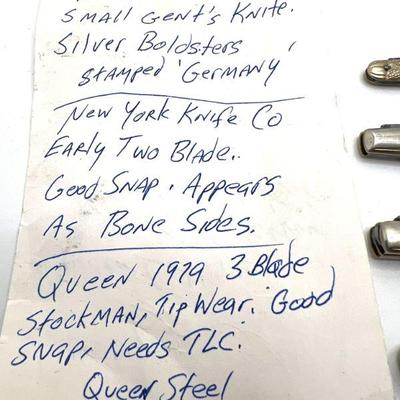 Small Gent's Knife.
Silver Boldsters
Stamped 'Germany'
New York Knife Co
Early Two Blade..
Good Snap. Appears
As Bone Sides.
Queen 1979 3 Blade
Stockman, Tip Wear. Good
Snap, Needs TLC.
Queen Steel